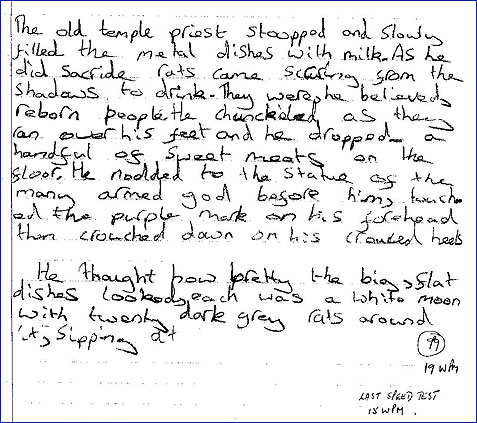 The old temple priest stoopped and slowly
filled the metal dishes with milk. As he
did sacride rats came scuring from the
shadows to drink. They were, he believed,
reborn people. He chuckeled as they
ran over his feet and he dropped a
handful of sweet meats on the
floor. He nodded to the statue of the
many armed god before him, touch
ed the purple mark on his forehead
then crouched down on his crouded heels
He thought how pretty the big, flat
dishes looked, each was a white moon
with twenty dark grey rats around
it, sipping at
99
19 WPM
LAST SPEED TEST
15 WPM.